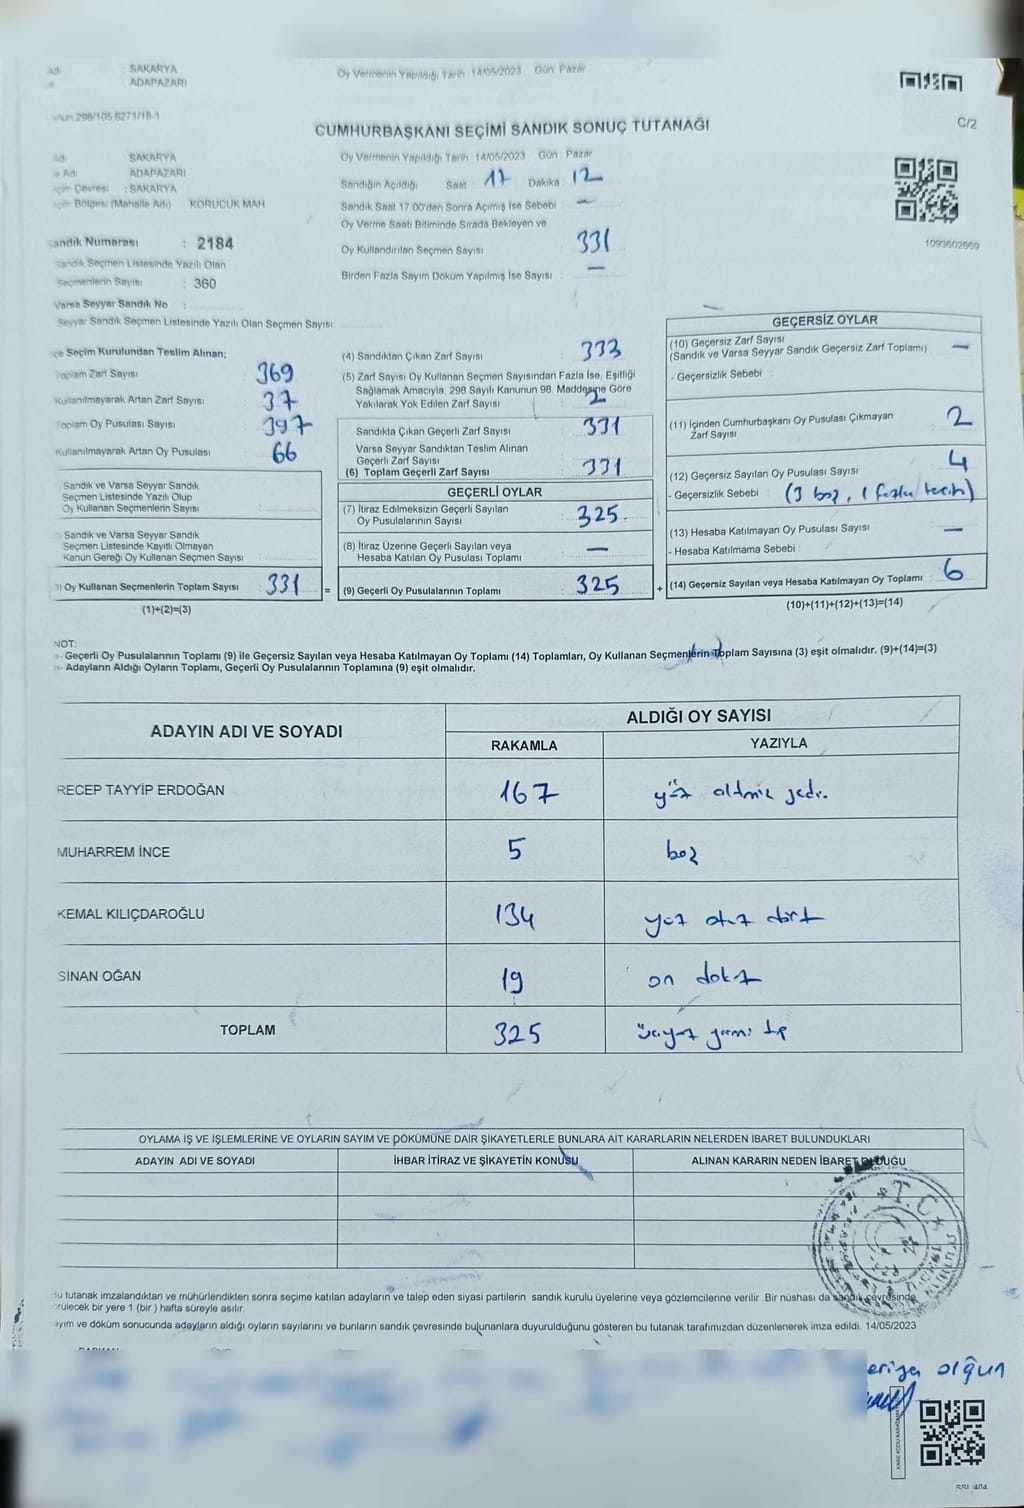 SAKARYA
ADAPAZARI
Oy Vermenin Yapıldığı Tarih 14/05/2023 Gün Pazar
298/105 6271/18-1
CUMHURBAŞKANI SEÇİMİ SANDIK SONUÇ TUTANAĞI
C/2
Adı SAKARYA
Adı ADAPAZARI
Çevresi : SAKARYA
Bölgesi (Mahalle Adı) KORUCUK MAH
Sandık Numarası : 2184
Sandık Seçmen Listesinde Yazılı Olan
Seçmenlerin Sayısı : 360
Varsa Seyyar Sandık No :
Seyyar Sandık Seçmen Listesinde Yazılı Olan Seçmen Sayısı
Oy Vermenin Yapıldığı Tarih 14/05/2023 Gün Pazar
Sandığın Açıldığı Saat 17 Dakika 12
Sandık Saat 17:00'den Sonra Açımış İse Sebebi : –
Oy Verme Saati Bitiminde Sırada Bekleyen ve
Oy Kullandırılan Seçmen Sayısı : 331
Birden Fazla Sayım Döküm Yapılmış İse Sayısı : –
1093602669
Seçim Kurulundan Teslim Alınan;
Toplam Zarf Sayısı 369
Kullanılmayarak Artan Zarf Sayısı : 37
Toplam Oy Pusulası Sayısı : 397
Kullanılmayarak Artan Oy Pusulası : 66
Sandık ve Varsa Seyyar Sandık
Seçmen Listesinde Yazılı Olup
Oy Kullanan Seçmenlerin Sayısı
Sandık ve Varsa Seyyar Sandık
Seçmen Listesinde Kayıtlı Olmayan
Kanun Gereği Oy Kullanan Seçmen Sayısı
Oy Kullanan Seçmenlerin Toplam Sayısı : 331 =
(1)+(2)=(3)
(4) Sandıktan Çıkan Zarf Sayısı : 333
(5) Zarf Sayısı Oy Kullanan Seçmen Sayısından Fazla İse, Eşitliği
Sağlamak Amacıyla, 298 Sayılı Kanunun 98. Maddesine Göre
Yakılarak Yok Edilen Zarf Sayısı : 2
Sandıkta Çıkan Geçerli Zarf Sayısı : 331
Varsa Seyyar Sandıktan Teslim Alınan
Geçerli Zarf Sayısı
(6) Toplam Geçerli Zarf Sayısı : 331
GEÇERLİ OYLAR
(7) İtiraz Edilmeksizin Geçerli Sayılan
Oy Pusulalarının Sayısı : 325
(8) İtiraz Üzerine Geçerli Sayılan veya
Hesaba Katılan Oy Pusulası Toplamı : –
(9) Geçerli Oy Pusulalarının Toplamı : 325 +
GEÇERSİZ OYLAR
(10) Geçersiz Zarf Sayısı
(Sandık ve Varsa Seyyar Sandık Geçersiz Zarf Toplamı) –
- Geçersizlik Sebebi :
(11) İçinden Cumhurbaşkanı Oy Pusulası Çıkmayan
Zarf Sayısı 2
(12) Geçersiz Sayılan Oy Pusulası Sayısı : 4
- Geçersizlik Sebebi : (3 boş, 1 fazla tercih)
(13) Hesaba Katılmayan Oy Pusulası Sayısı : –
- Hesaba Katılmama Sebebi :
(14) Geçersiz Sayılan veya Hesaba Katılmayan Oy Toplamı : 6
(10)+(11)+(12)+(13)=(14)
NOT:
- Geçerli Oy Pusulalarının Toplamı (9) ile Geçersiz Sayılan veya Hesaba Katılmayan Oy Toplamı (14) Toplamları, Oy Kullanan Seçmenlerin Toplam Sayısına (3) eşit olmalıdır. (9)+(14)=(3)
- Adayların Aldığı Oyların Toplamı, Geçerli Oy Pusulalarının Toplamına (9) eşit olmalıdır.
ADAYIN ADI VE SOYADI
ALDIĞI OY SAYISI
RAKAMLA YAZIYLA
RECEP TAYYİP ERDOĞAN 167 yüz altmış yedi.
MUHARREM İNCE 5 beş
KEMAL KILIÇDAROĞLU 134 yüz otuz dört
SİNAN OĞAN 19 on dokuz
TOPLAM 325 üçyüz yirmi beş
OYLAMA İŞ VE İŞLEMLERİNE VE OYLARIN SAYIM VE DÖKÜMÜNE DAİR ŞİKAYETLERLE BUNLARA AİT KARARLARIN NELERDEN İBARET BULUNDUKLARI
ADAYIN ADI VE SOYADI İHBAR İTİRAZ VE ŞİKAYETİN KONUSU ALINAN KARARIN NEDEN İBARET OLDUĞU
T.C.
Bu tutanak imzalandıktan ve mühürlendikten sonra seçime katılan adayların ve talep eden siyasi partilerin sandık kurulu üyelerine veya gözlemcilerine verilir. Bir nüshası da sandık çevresinde
bir yere 1 (bir) hafta süreyle asılır.
Sayım ve döküm sonucunda adayların aldığı oyların sayılarını ve bunların sandık çevresinde bulunanlara duyurulduğunu gösteren bu tutanak tarafımızdan düzenlenerek imza edildi. 14/05/2023
olgun